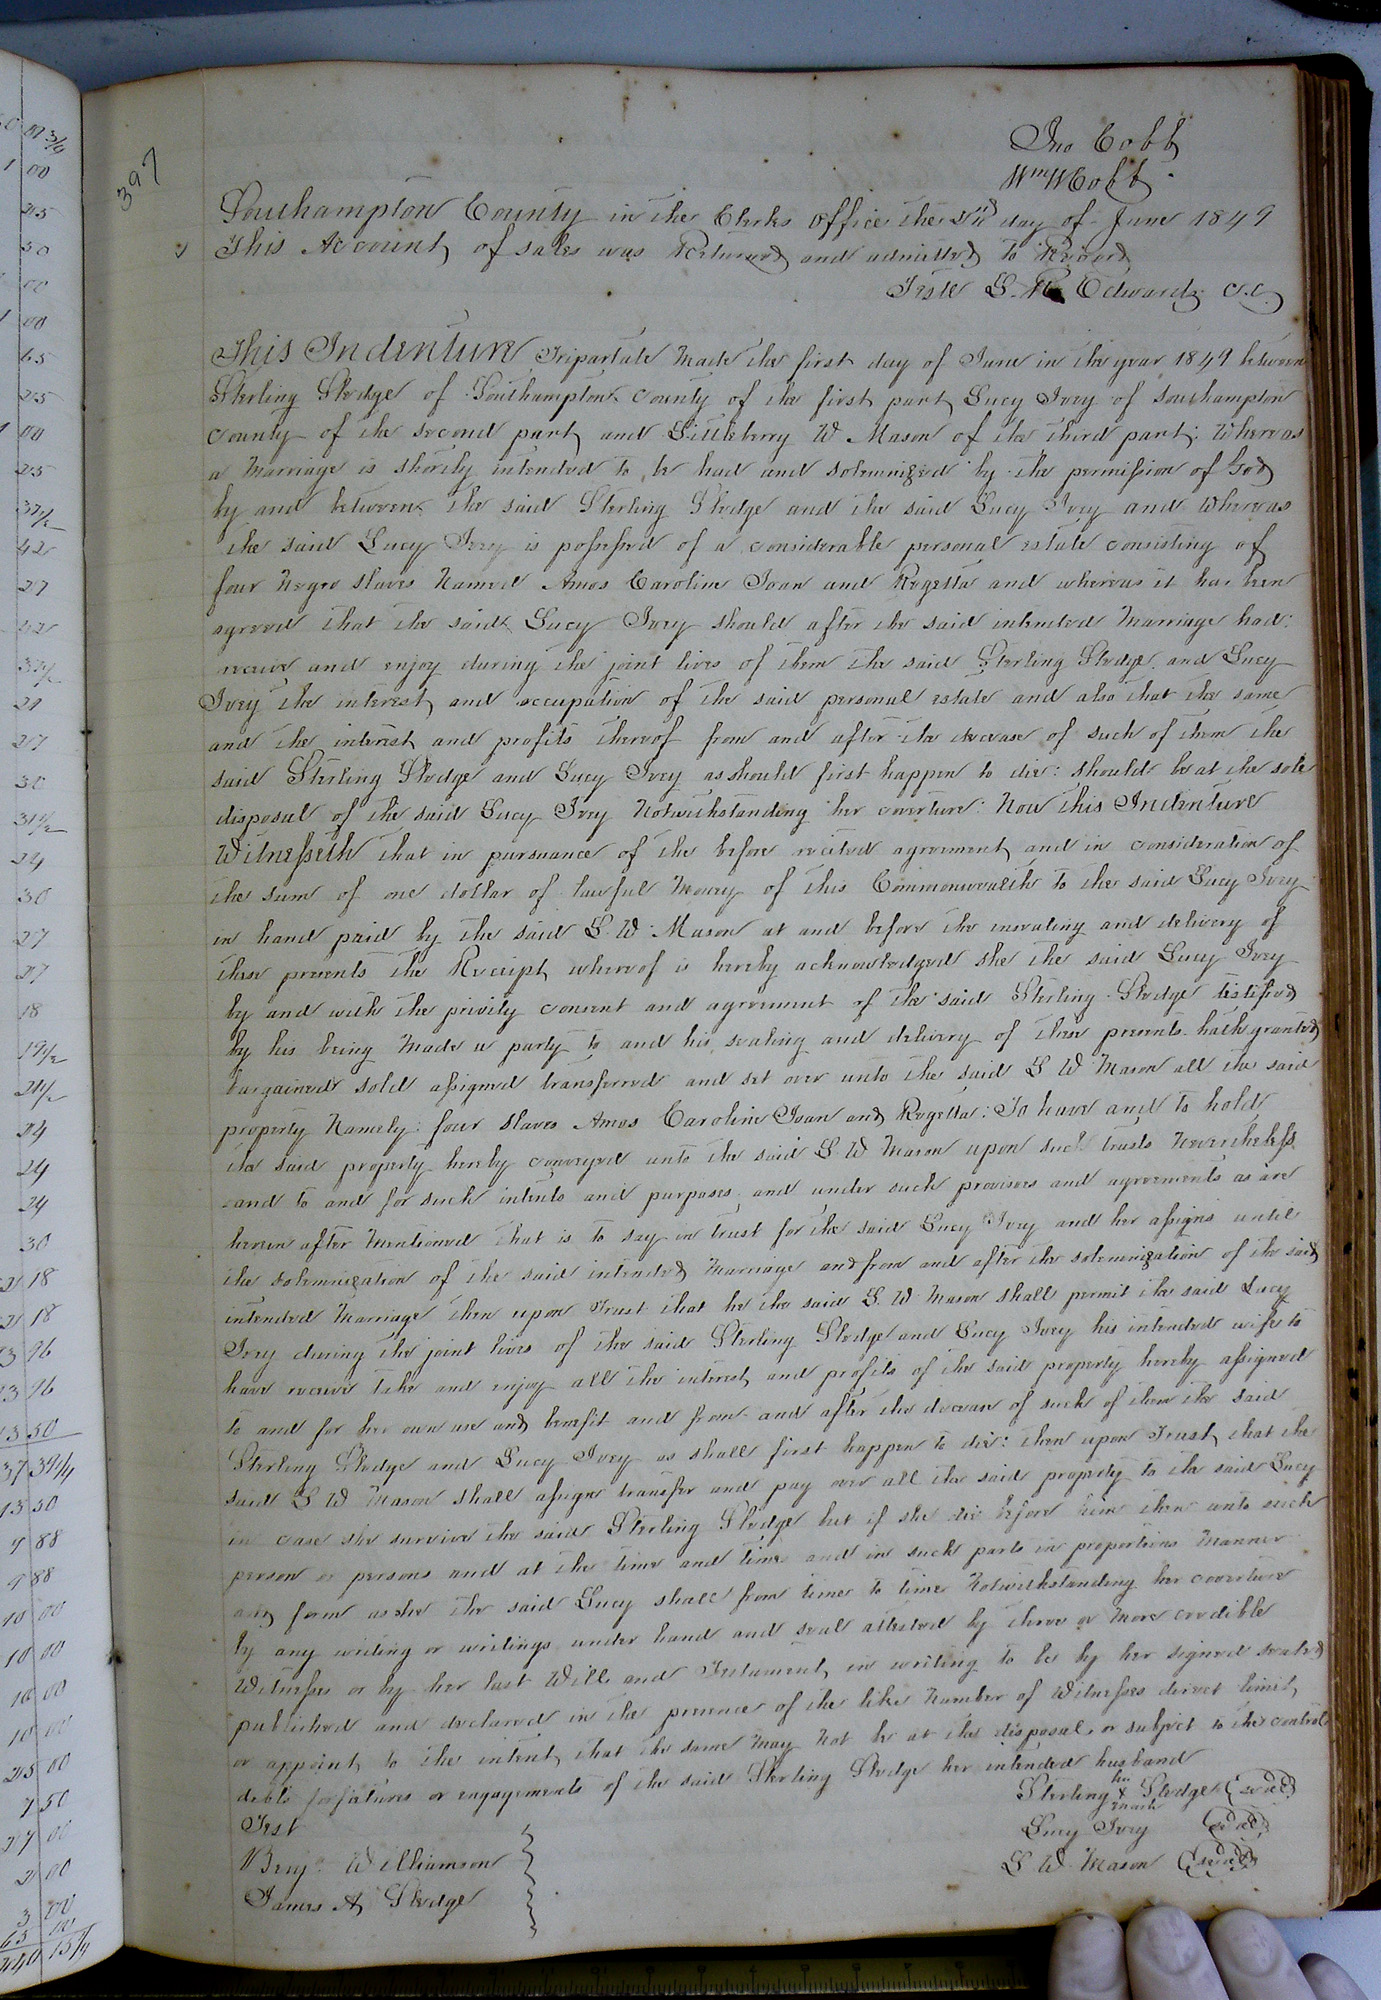 397
Jno Cobb
Wm W Cobb
Southampton County in the Clerks office the day of June 1849
This Account of sales was Returned and admitted to Record
Teste L. R. Edwards C.C.
This Indenture Tripartate Made the first day of June in the year 1849 between
Sterling Sledge of Southampton County of the first part Lucy Ivey of Southampton
County of the second part and Littleberry W Mason of the third part: Whereas
a Marriage is shortly intended to be had and solemnized by the permission of God
by and between the said Sterling Sledge and the said Lucy Ivey and Whereas
the said Lucy Ivey is possessed of a considerable personal estate consisting of
four Negro slaves Named Amos Caroline Joan and Rogetta and whereas it has been
agreed that the said Lucy Ivey should after the said intended Marriage had:
receive and enjoy during the joint lives of them the said Sterling Sledge and Lucy
Ivey the interest and occupation of the said personal estate and also that the same
and the interest and profits thereof from and after the decease of such of them the
said Sterling Sledge and Lucy Ivey as should first happen to die: should be at the sole
disposal of the said Lucy Ivey Notwithstanding her coverture: Now This Indenture
Witnesseth that in pursuance of the before recited agreement and in consideration of
the sum of one dollar of lawful Money of this Commonwealth to the said Lucy Ivey
in hand paid by the said L. W. Mason at and before the ensealing and delivery of
these presents the Receipt whereof is hereby acknowledged she the said Lucy Ivey
by and with the privity consent and agreement of the said Sterling Sledge testified
by his being Made a party to and his sealing and delivery of these presents hath granted
bargained sold assigned transferred and set over unto the said L W Mason all the said
property Namely: four slaves Amos Caroline Joan and Rogetta: To have and to hold
the said property hereby conveyed unto the said L W Mason upon such trusts Nevertheless
and to and for such intents and purposes and under such provisoes and agreements as are
herein after Mentioned that is to say in trust for the said Lucy Ivey and her assigns until
the solemnization of the said intended Marriage and from and after the solemnization of the said
intended Marriage then upon Trust that he the said L. W. Mason shall permit the said Lucy
Ivey during the joint lives of the said Sterling Sledge and Lucy Ivey his intended wife to
have receive take and enjoy all the interest and profits of the said property hereby assigned
to and for her own use and benefit and from and after the decease of such of them the said
Sterling Sledge and Lucy Ivey as shall first happen to die: then upon Trust that the
said L W Mason shall assign transfer and pay over all the said property to the said Lucy
in case she survive the said Sterling Sledge but if she die before him then unto such
person or persons and at the time and time and in such parts in proportions Manner
and form as she the said Lucy shall from time to time Notwithstanding her coverture
by any writing or writings under hand and seal attested by three or More credible
Witnesses or by her last Will and Testament in writing to be by her signed sealed
published and declared in the presence of the like Number of Witnesses direct limit
or appoint to the intent that the same May Not be at the disposal or subject to the control
debts forfeitures or engagements of the said Sterling Sledge her intended husband
Sterling his X mark Sledge (seal)
Test
Lucy Ivey (seal)
Benj. Williamson
L W Mason (seal)
James A Sledge